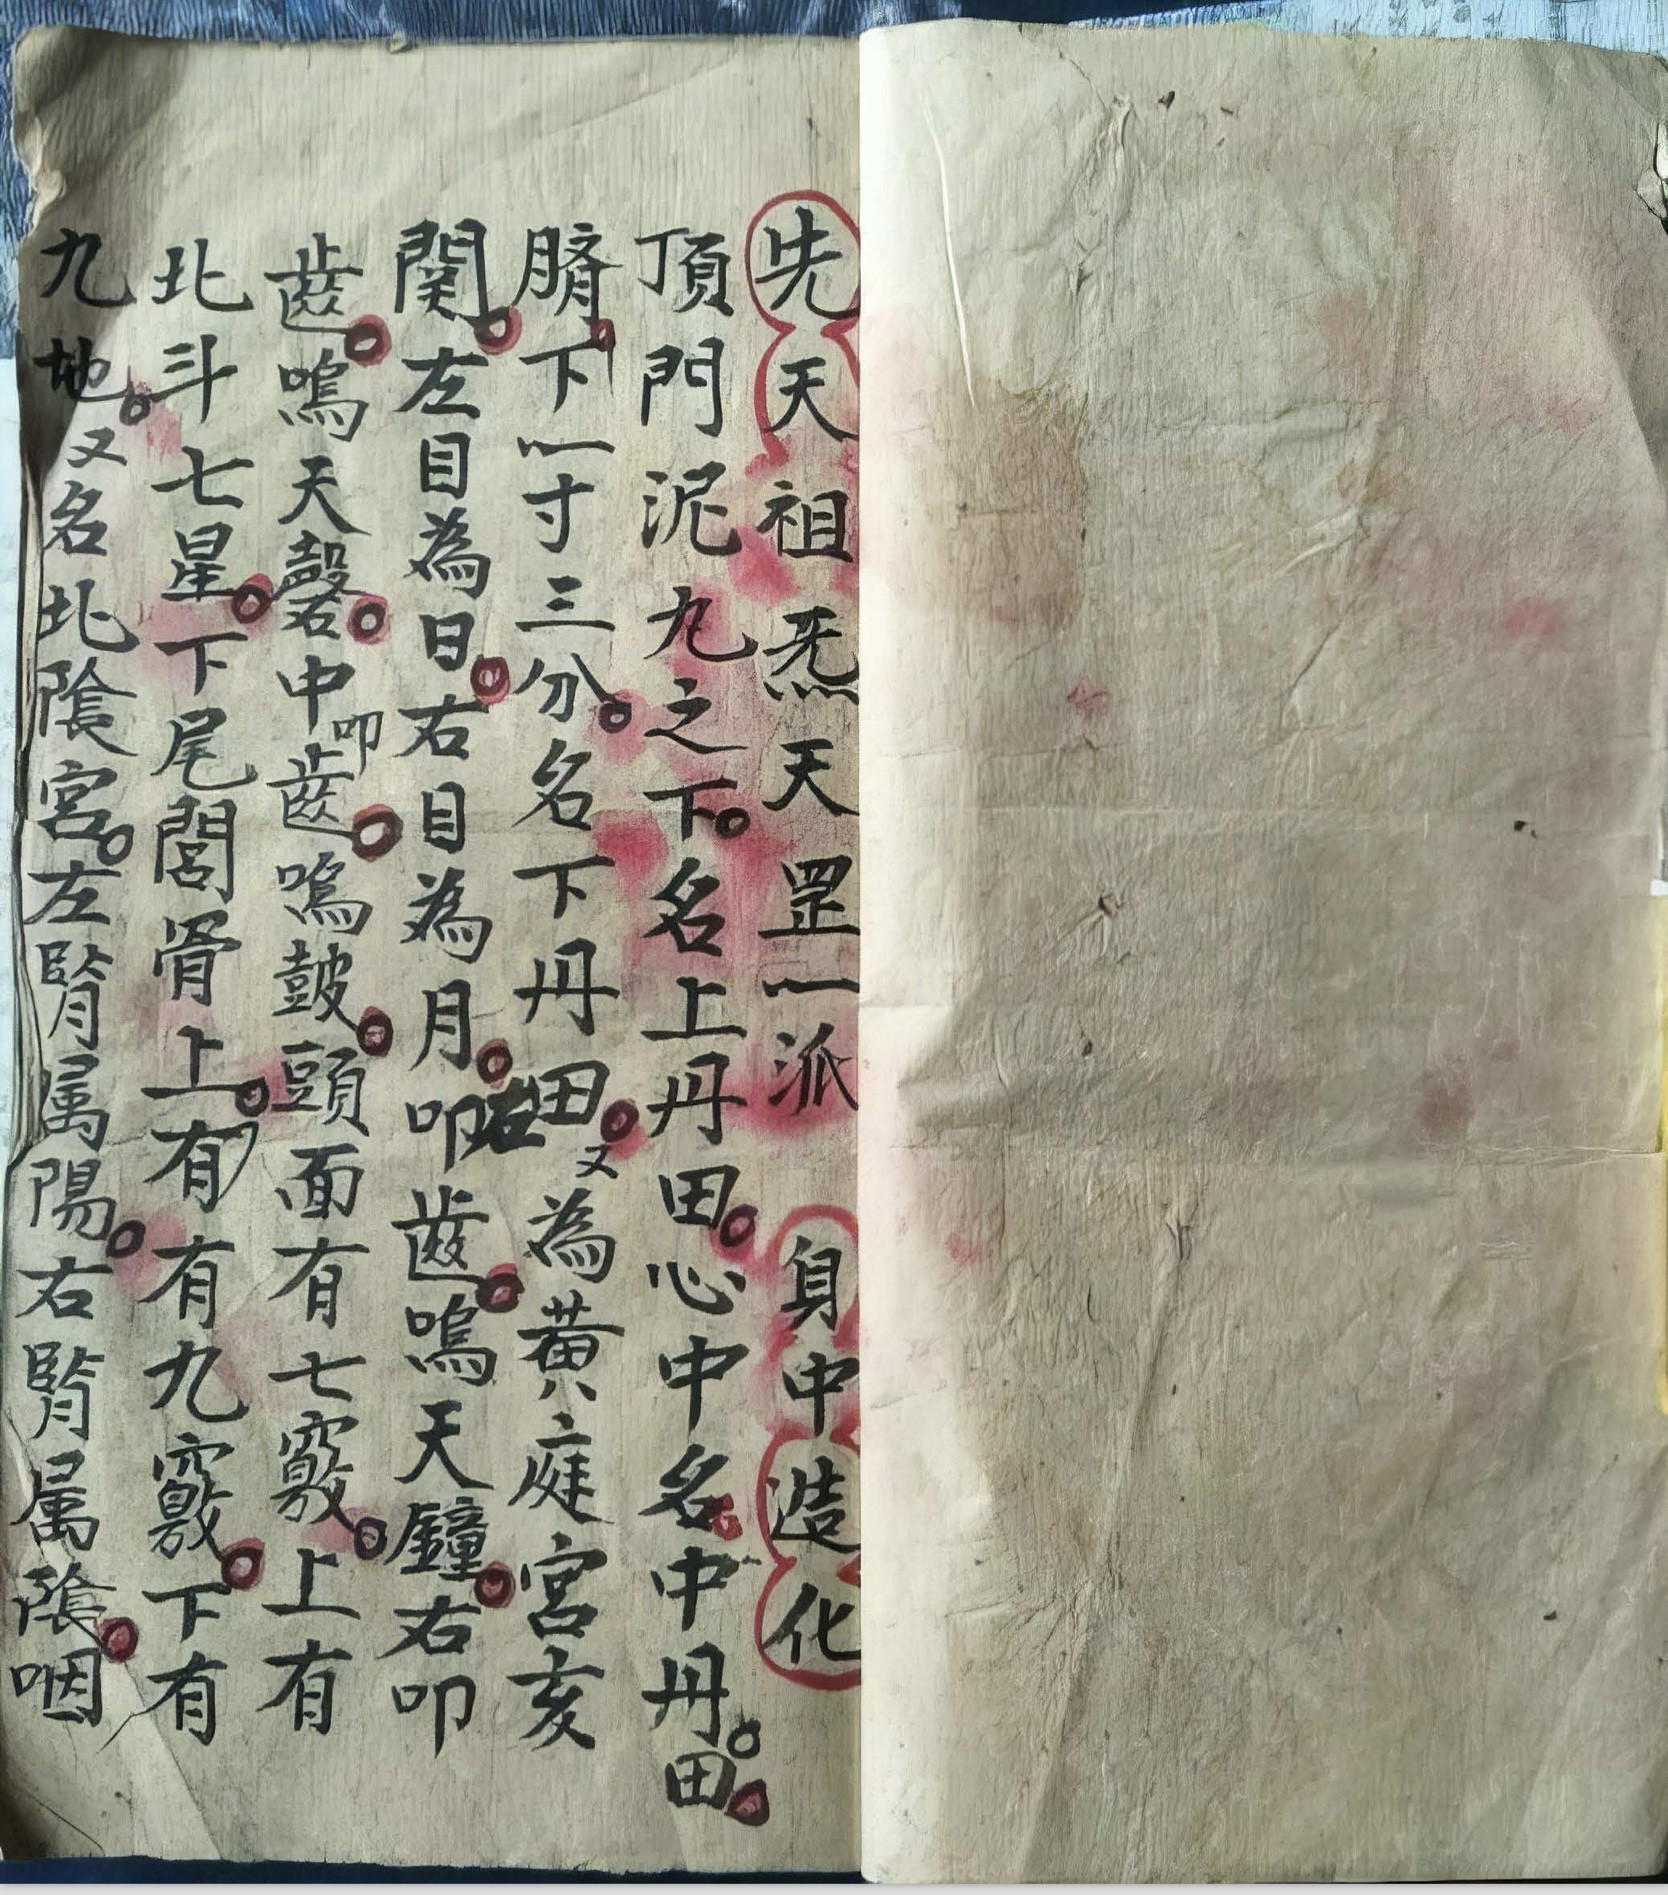 先天祖炁天罡一派 身中造化
頂門泥九之下。名上丹田。心中名中丹田。
臍下一寸三分。名下丹田。又為黃庭宮亥
関。左目為日。右目為月。叩左齒。鳴天鐘。右叩
齒。鳴天磬。中叩齒。鳴鼓。頭面有七竅。上有
北斗七星。下尾閭骨上。有有九竅。下有
九地。又名北陰宮。左腎属陽。右腎属陰。咽